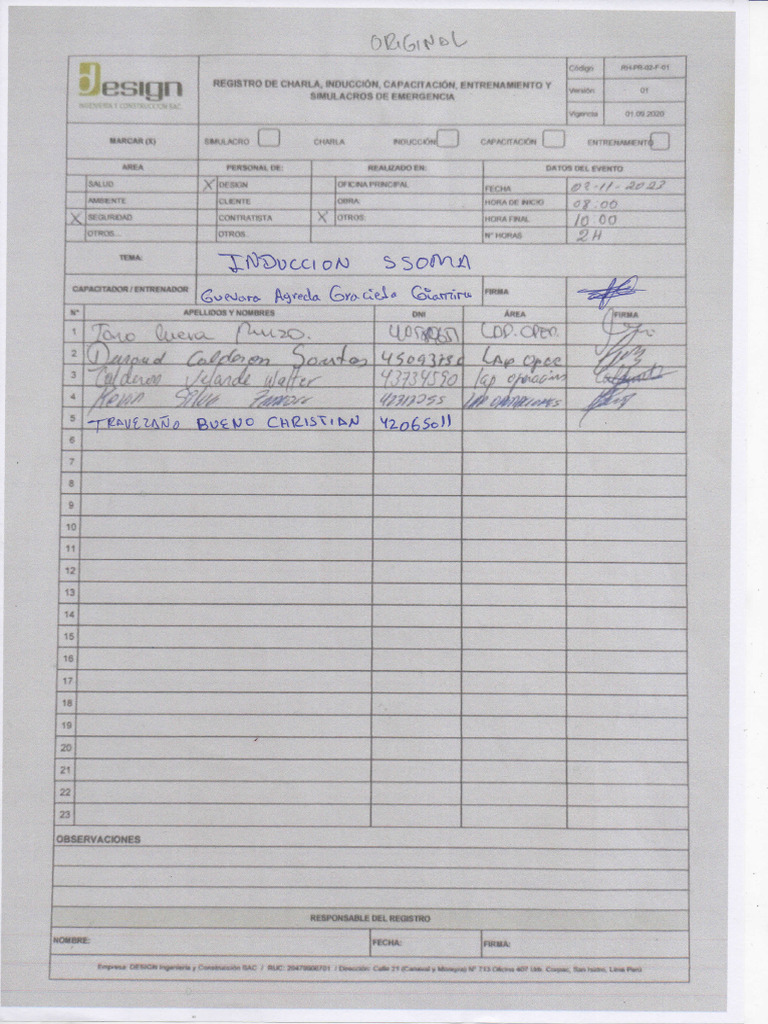 ORIGINAL
Design
INGENIERÍA Y CONSTRUCCIÓN SAC.
REGISTRO DE CHARLA, INDUCCIÓN, CAPACITACIÓN, ENTRENAMIENTO Y SIMULACROS DE EMERGENCIA
Código RH-PR-02-F-01
Versión 01
Vigencia 01.09.2020
MARCAR (X) SIMULACRO CHARLA INDUCCIÓN CAPACITACIÓN ENTRENAMIENTO
AREA PERSONAL DE: REALIZADO EN: DATOS DEL EVENTO
SALUD X DESIGN OFICINA PRINCIPAL FECHA 02-11-2023
AMBIENTE CLIENTE OBRA: HORA DE INICIO 08:00
X SEGURIDAD CONTRATISTA X OTROS: HORA FINAL 10:00
OTROS... OTROS.. N° HORAS 2H
TEMA: INDUCCION SSOMA
CAPACITADOR / ENTRENADOR Guevara Agreda Graciela FIRMA
N° APELLIDOS Y NOMBRES DNI ÁREA FIRMA
1 Cueva LAP. OPER.
2 Durand Calderon 45093750 LAP OPER
3 Calderon Velarde Walter 43734590 lap operacion
4 Silva LAP OPERACIONES
5 TRAVEZAÑO BUENO CHRISTIAN 42065011
6
7
8
9
10
11
12
13
14
15
16
17
18
19
20
21
22
23
OBSERVACIONES
RESPONSABLE DEL REGISTRO
NOMBRE: FECHA: FIRMA:
Empresa: DESIGN Ingeniería y Construcción SAC / RUC: 20479906701 / Dirección: Calle 21 (Canaval y Moreyra) N° 713 Oficina 407 Urb. Corpac, San Isidro, Lima Perú